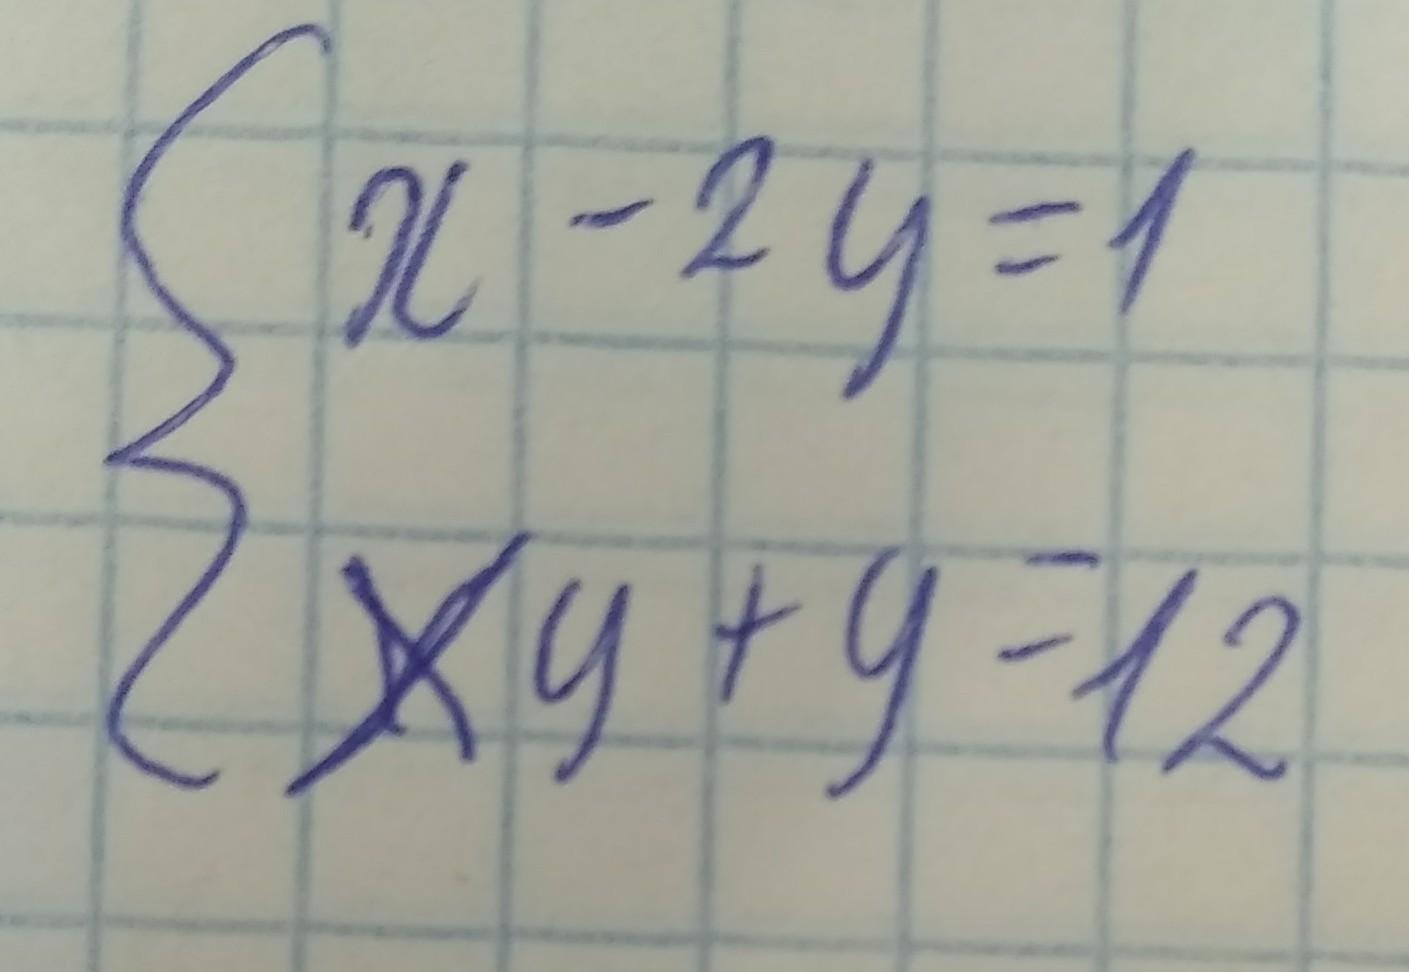 x - 2y = 1
xy + y = 12